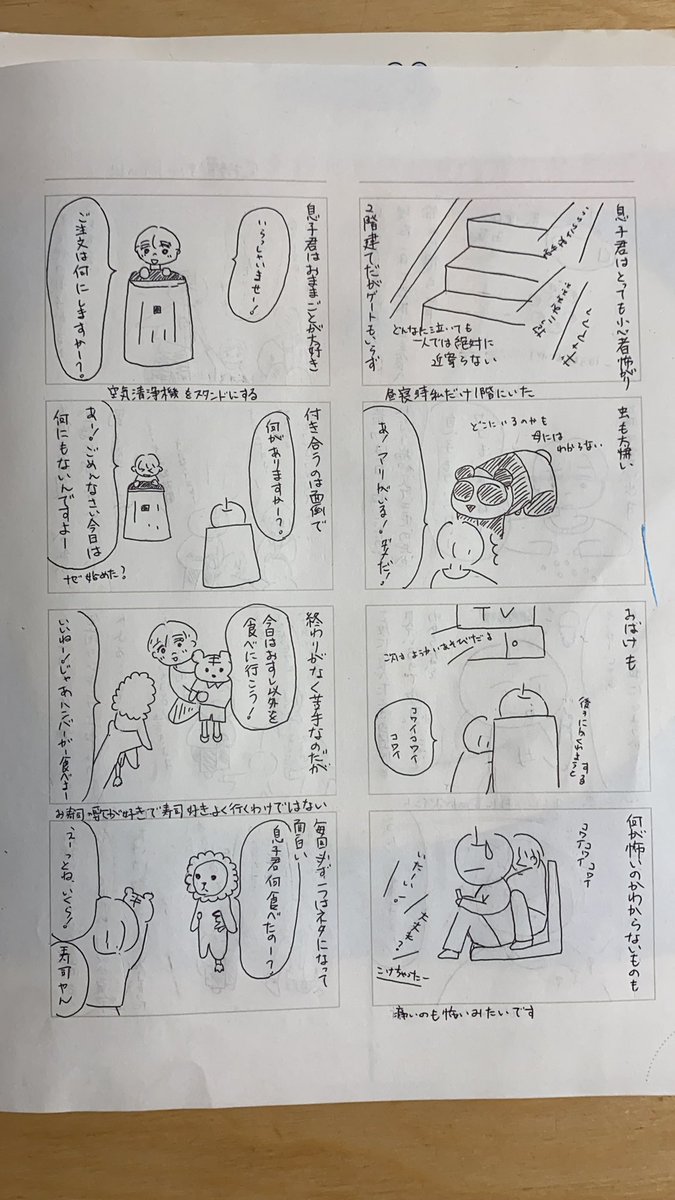 息子君はとっても小心者怖がり
2階建てだがゲートもいらず
どんなに泣いても
一人では絶対に
近寄らない
昼寝時私だけ1階にいた
虫も大怖い
どこにいるのかも
母には
わからない
あ!アリがいる!ダメだ!
おばけも
TV
後ろにかくれようと
する
コワイコワイ
コワイ
何が怖いのかわからないものも
コワイコワイコワイ
いたいー!
大丈夫?
こけちゃったー
痛いのも怖いみたいです
息子君はおままごとが大好き
いらっしゃいませー!
ご注文は何にしますかー?
空気清浄機をスタンドにする
付き合うのは面倒で
何がありますかー?
あー!ごめんなさい今日は
何にもないんですよー
なぜ始めた?
終わりがなく苦手なのだが
今日はおすし以外を
食べに行こう!
いいねー!じゃあハンバーガー食べよー
お寿司の歌が好きで寿司好きよく行くわけではない
毎回必ず一つはネタになって
面白い
息子君何食べたのー?
えーっとね、いくら!
寿司やん